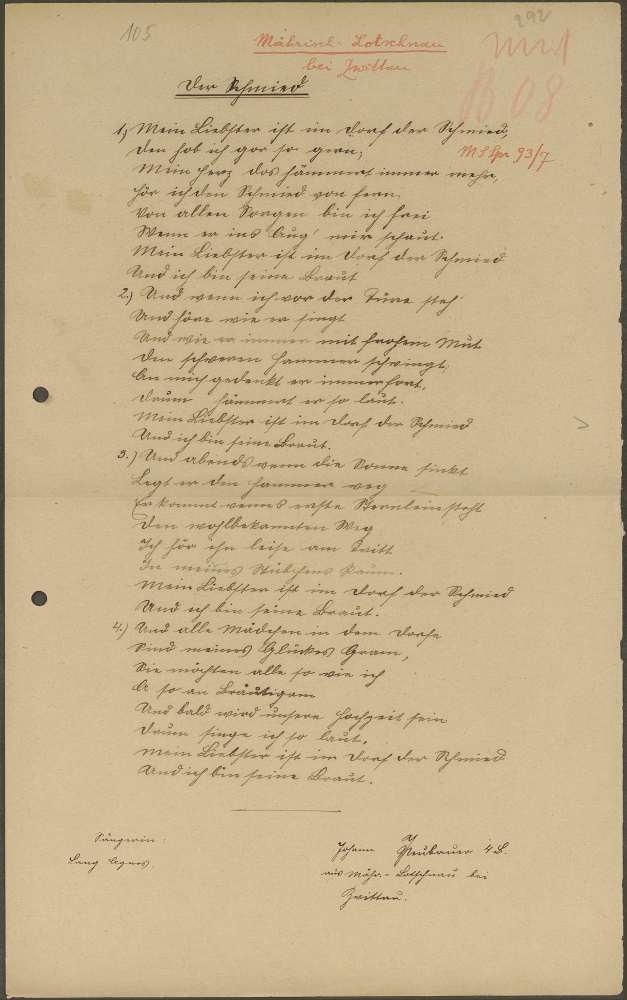 105
292
Mährisch-Lotschnau
bei Zwittau
B 08
Der Schmied
MSpr 93/7
1.) Mein Liebster ist im Dorf der Schmied,
Den hab ich gar so gern;
Mein Herz das hämmert immer mehr,
Hör ich den Schmied von fern.
Von allen Sorgen bin ich frei
Wenn er ins Aug' mir schaut.
Mein Liebster ist im Dorf der Schmied
Und ich bin seine Braut
2.) Und wenn ich vor der Türe steh'
Und höre wie er singt
Und wie er immer mit frohem Mut
Den schweren Hammer schwingt,
An mich gedenkt er immerfort,
Drum hämmert er so laut.
Mein Liebster ist im Dorf der Schmied
Und ich bin seine Braut.
3.) Und abends wenn die Sonne sinkt
Legt er den Hammer weg
Er kommt wenns erste Sternlein steht
Den wohlbekannten Weg
Ich hör ihn leise am Tritt
In meines Stübchens Raum.
Mein Liebster ist im Dorf der Schmied
Und ich bin seine Braut.
4.) Und alle Mädchen in dem Dorfe
Sind meines Glückes Gram,
Sie möchten alle so wie ich
A so an Bräutigam
Und bald wird unsere Hochzeit sein
Drum singe ich so laut.
Mein Liebster ist im Dorf der Schmied
Und ich bin seine Braut.
Sängerin:
Lang Agnes.
Johann Neubauer 4 B.
aus Mähr.-Lotschnau bei
Zwittau.